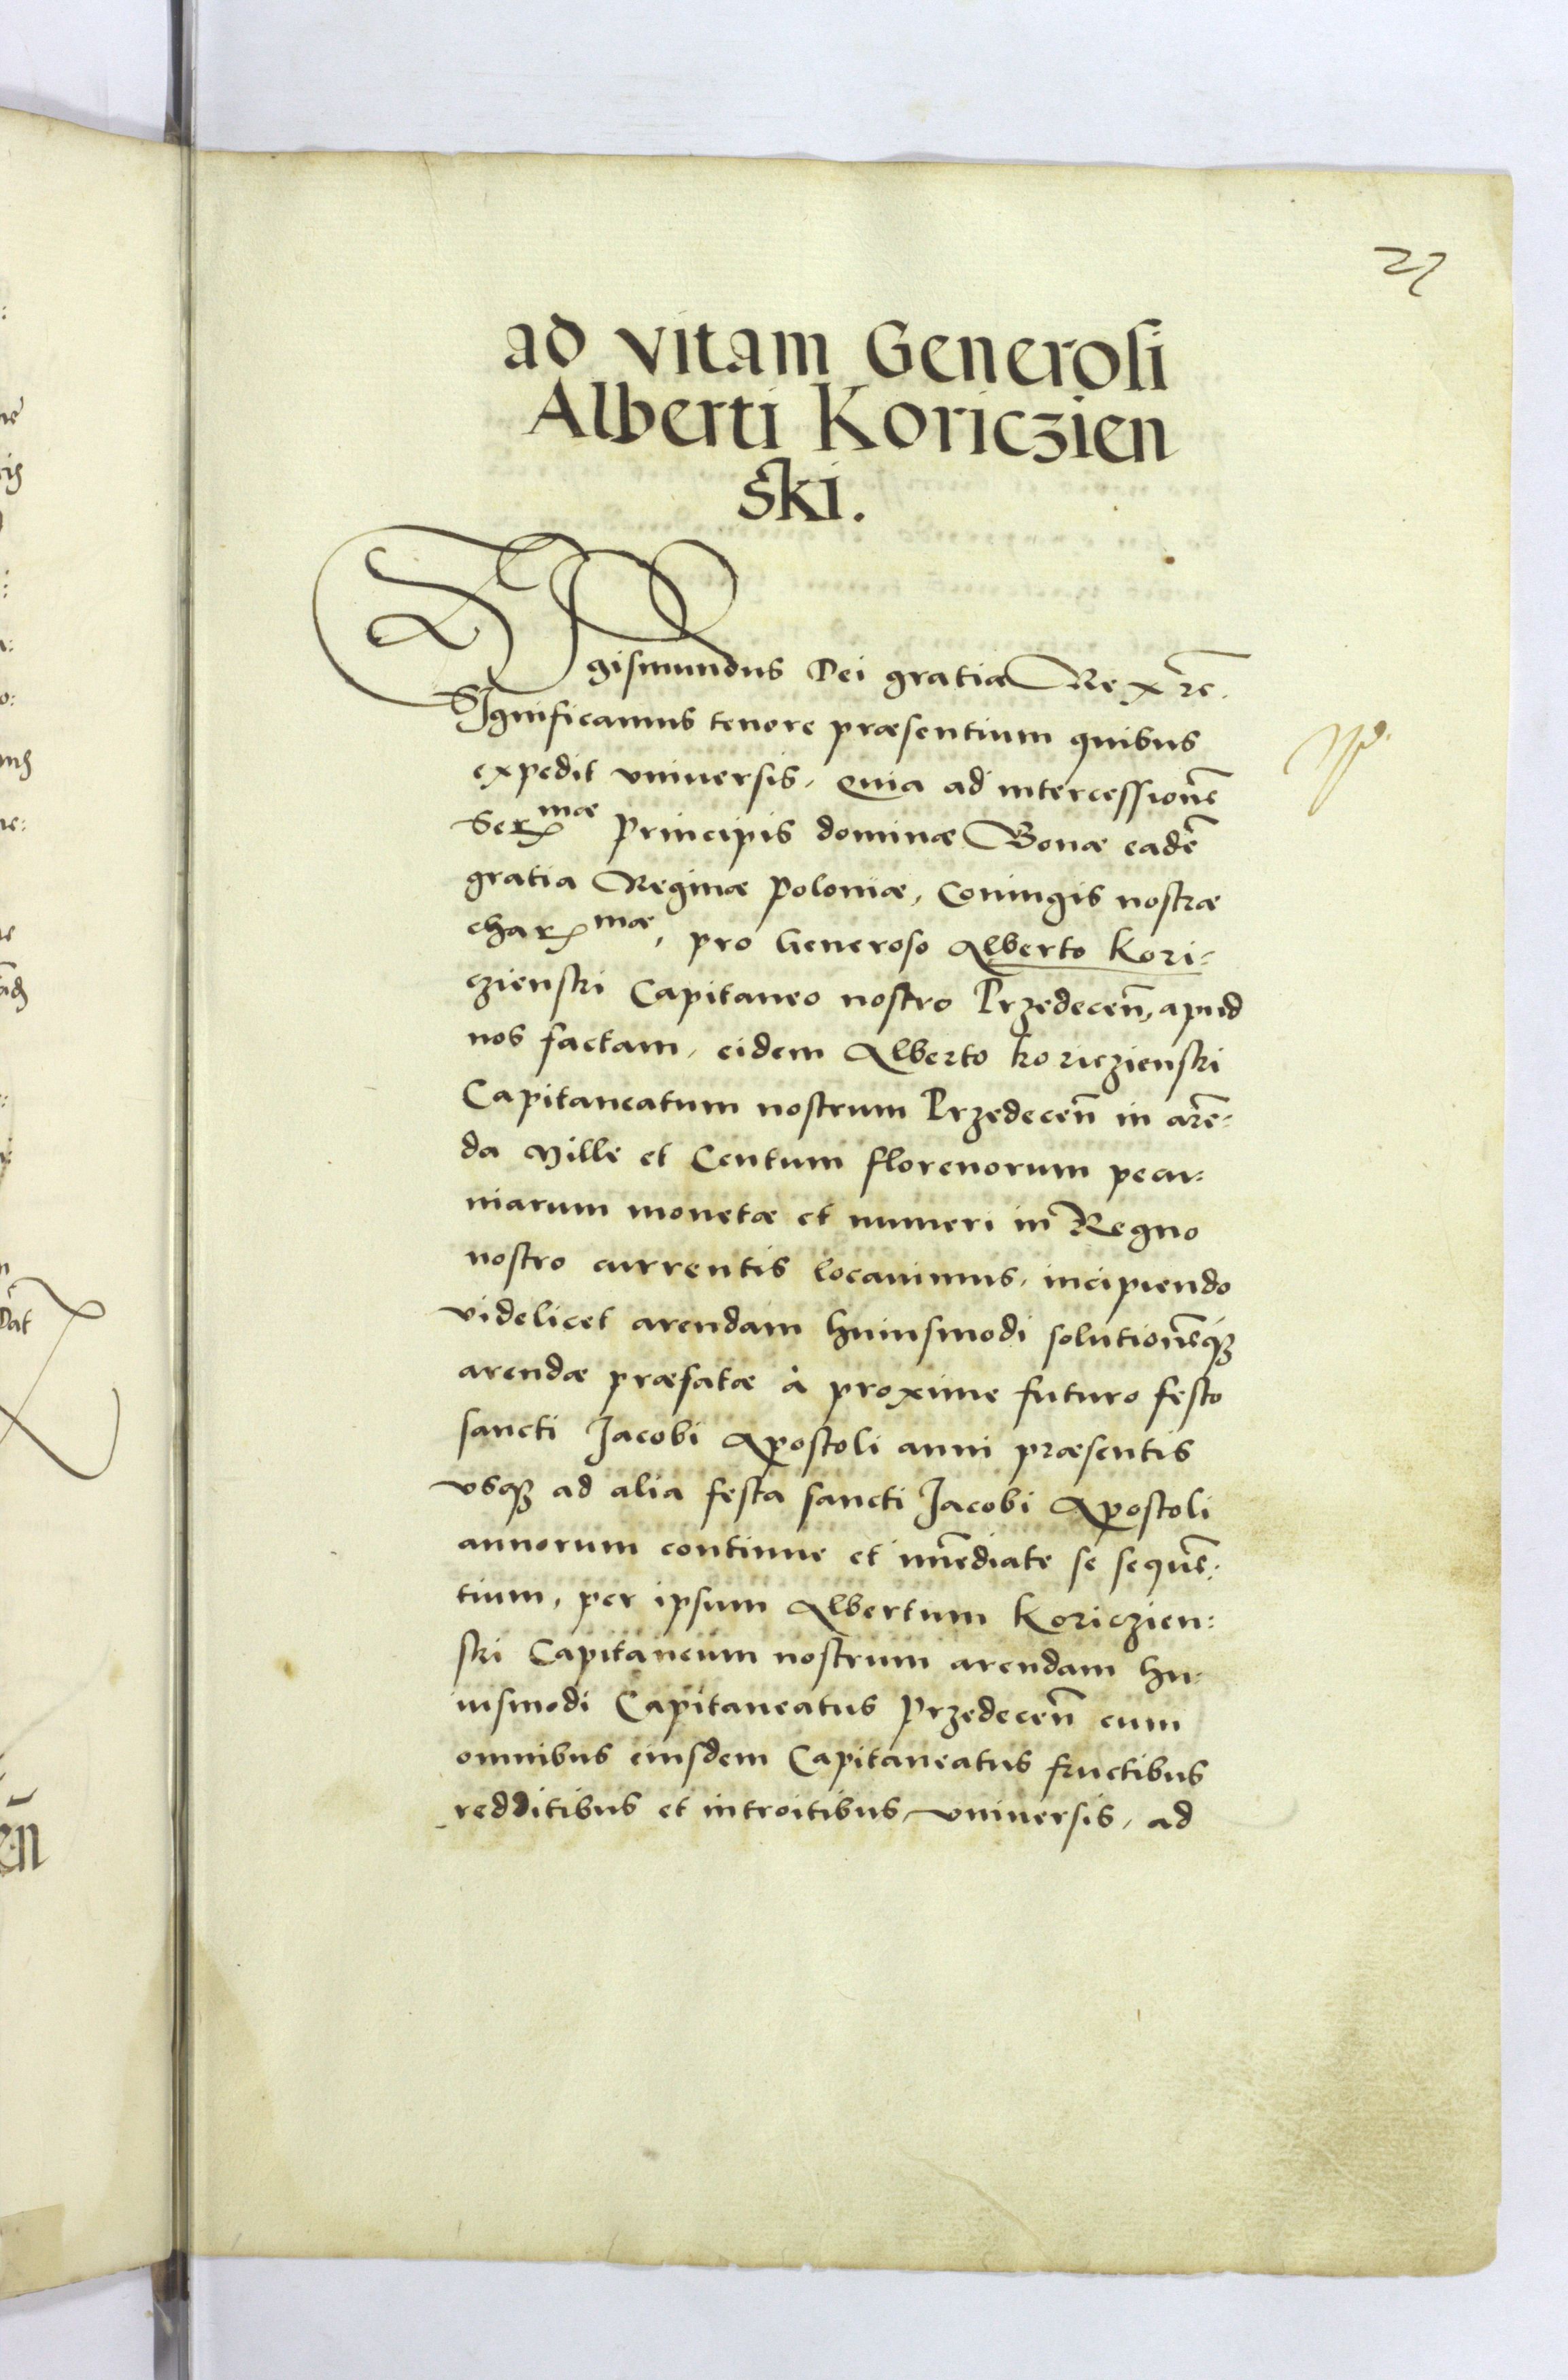 27
ad vitam Generosi
Alberti Koriczien
ski.
Sigismundus Dei gratia Rex etc.
Significamus tenore præsentium quibus
expedit vniuersis, Quia ad intercessionē
Serᵐæ Principis dominæ Bonæ eadē
gratia Reginæ Poloniæ, Coniugis nostræ
charᵐæ, pro Generoso Alberto Kori:
czienski Capitaneo nostro Przedeceñ, apud
nos factam, eidem Alberto Koriczienski
Capitaneatum nostrum Przedeceñ in arē:
da Mille et Centum florenorum pecu:
niarum monetæ et numeri in Regno
nostro currentis locauimus, incipiendo
videlicet arendam huiusmodi solutionēqȝ
arendæ præfatæ à proxime futuro festo
sancti Jacobi Apostoli anni præsentis
vsqȝ ad alia festa sancti Jacobi Apostoli
annorum continue et im̄ediate se sequē:
tium, per ipsum Albertum Koriczien:
ski Capitaneum nostrum arendam hu:
iusmodi Capitaneatus Przedeceñ cum
omnibus eiusdem Capitaneatus fructibus
redditibus et introitibus vniuersis, ad